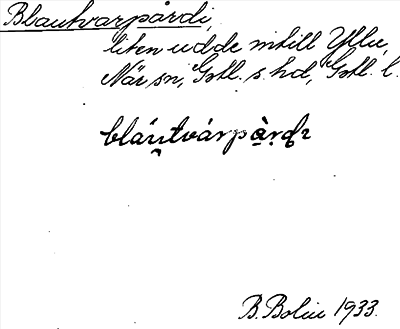 Blautvarpårdi,
liten udde intill Yllu,
När sn, Gotl. s. hd, Gotl. l.
bláu̯tvárpàrdı
B. Bolin 1933.